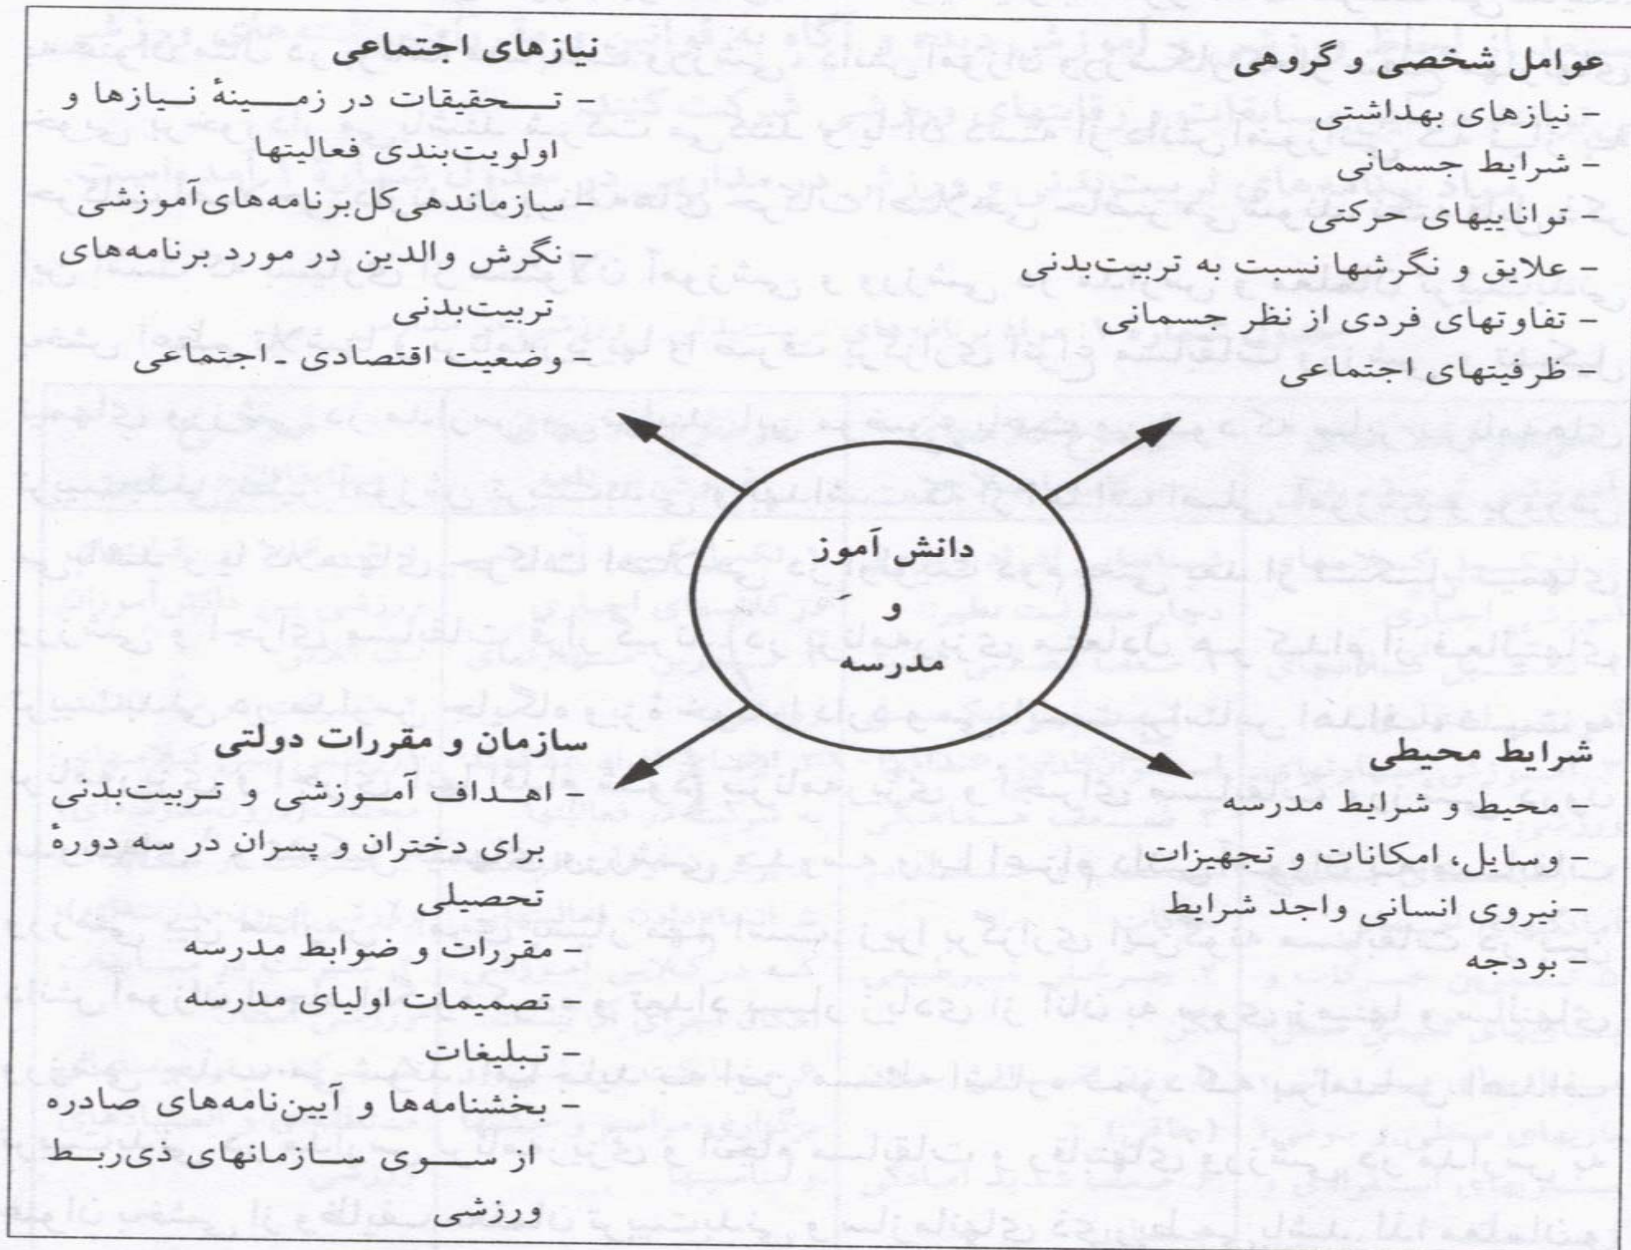 عوامل شخصی و گروهی
- نیازهای بهداشتی
- شرایط جسمانی
- تواناییهای حرکتی
- علایق و نگرشها نسبت به تربیت‌بدنی
- تفاوتهای فردی از نظر جسمانی
- ظرفیتهای اجتماعی
نیازهای اجتماعی
- تحقیقات در زمینهٔ نیازها و
اولویت‌بندی فعالیتها
- سازماندهی کل برنامه‌های آموزشی
- نگرش والدین در مورد برنامه‌های
تربیت‌بدنی
- وضعیت اقتصادی - اجتماعی
دانش آموز
و
مدرسه
شرایط محیطی
- محیط و شرایط مدرسه
- وسایل، امکانات و تجهیزات
- نیروی انسانی واجد شرایط
- بودجه
سازمان و مقررات دولتی
- اهداف آموزشی و تربیت‌بدنی
برای دختران و پسران در سه دورهٔ
تحصیلی
- مقررات و ضوابط مدرسه
- تصمیمات اولیای مدرسه
- تبلیغات
- بخشنامه‌ها و آیین‌نامه‌های صادره
از سوی سازمانهای ذی‌ربط
ورزشی